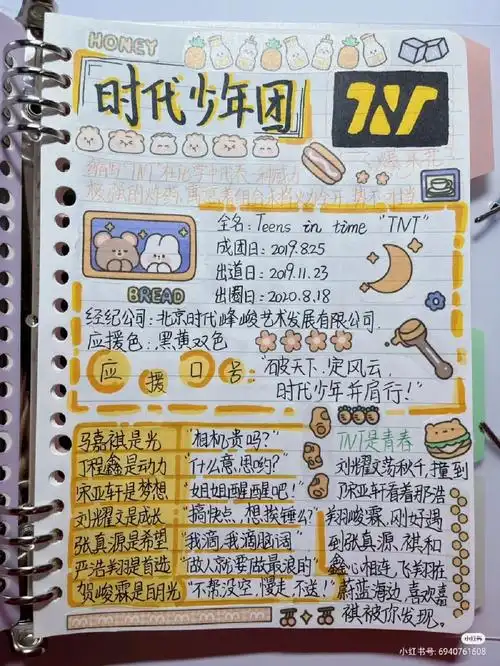 HONEY
时代少年团
TNT
爆米花
TNT在化学中代表一种威力
极强的炸药,
BREAD
全名:Teens in time "TNT"
成团日:2019.825
出道日:2019.11.23
出圈日:2020.8.18
经纪公司:北京时代峰峻艺术发展有限公司.
应援色:黑黄双色
应援口号:
"破天下,定风云,
时代少年并肩行!"
马嘉祺是光 "相机贵吗?"
丁程鑫是动力 "什么意思哟?"
宋亚轩是梦想 "姐姐醒醒吧!"
刘耀文是成长 "搞快点,想挨锤么?"
张真源是希望 "我滴,我滴脑阔"
严浩翔是首选 "做人就要做最浪的"
贺峻霖是明光 "不帮,没空,慢走,不送!"
TNT是青春
刘耀文荡秋千,撞到
了宋亚轩看着那浩
翔峻霖,刚好遇
到张真源、祺和
鑫心相连,飞翔在
蔚蓝海边,喜欢嘉
祺被你发现。
小红书
小红书号: 6940761608